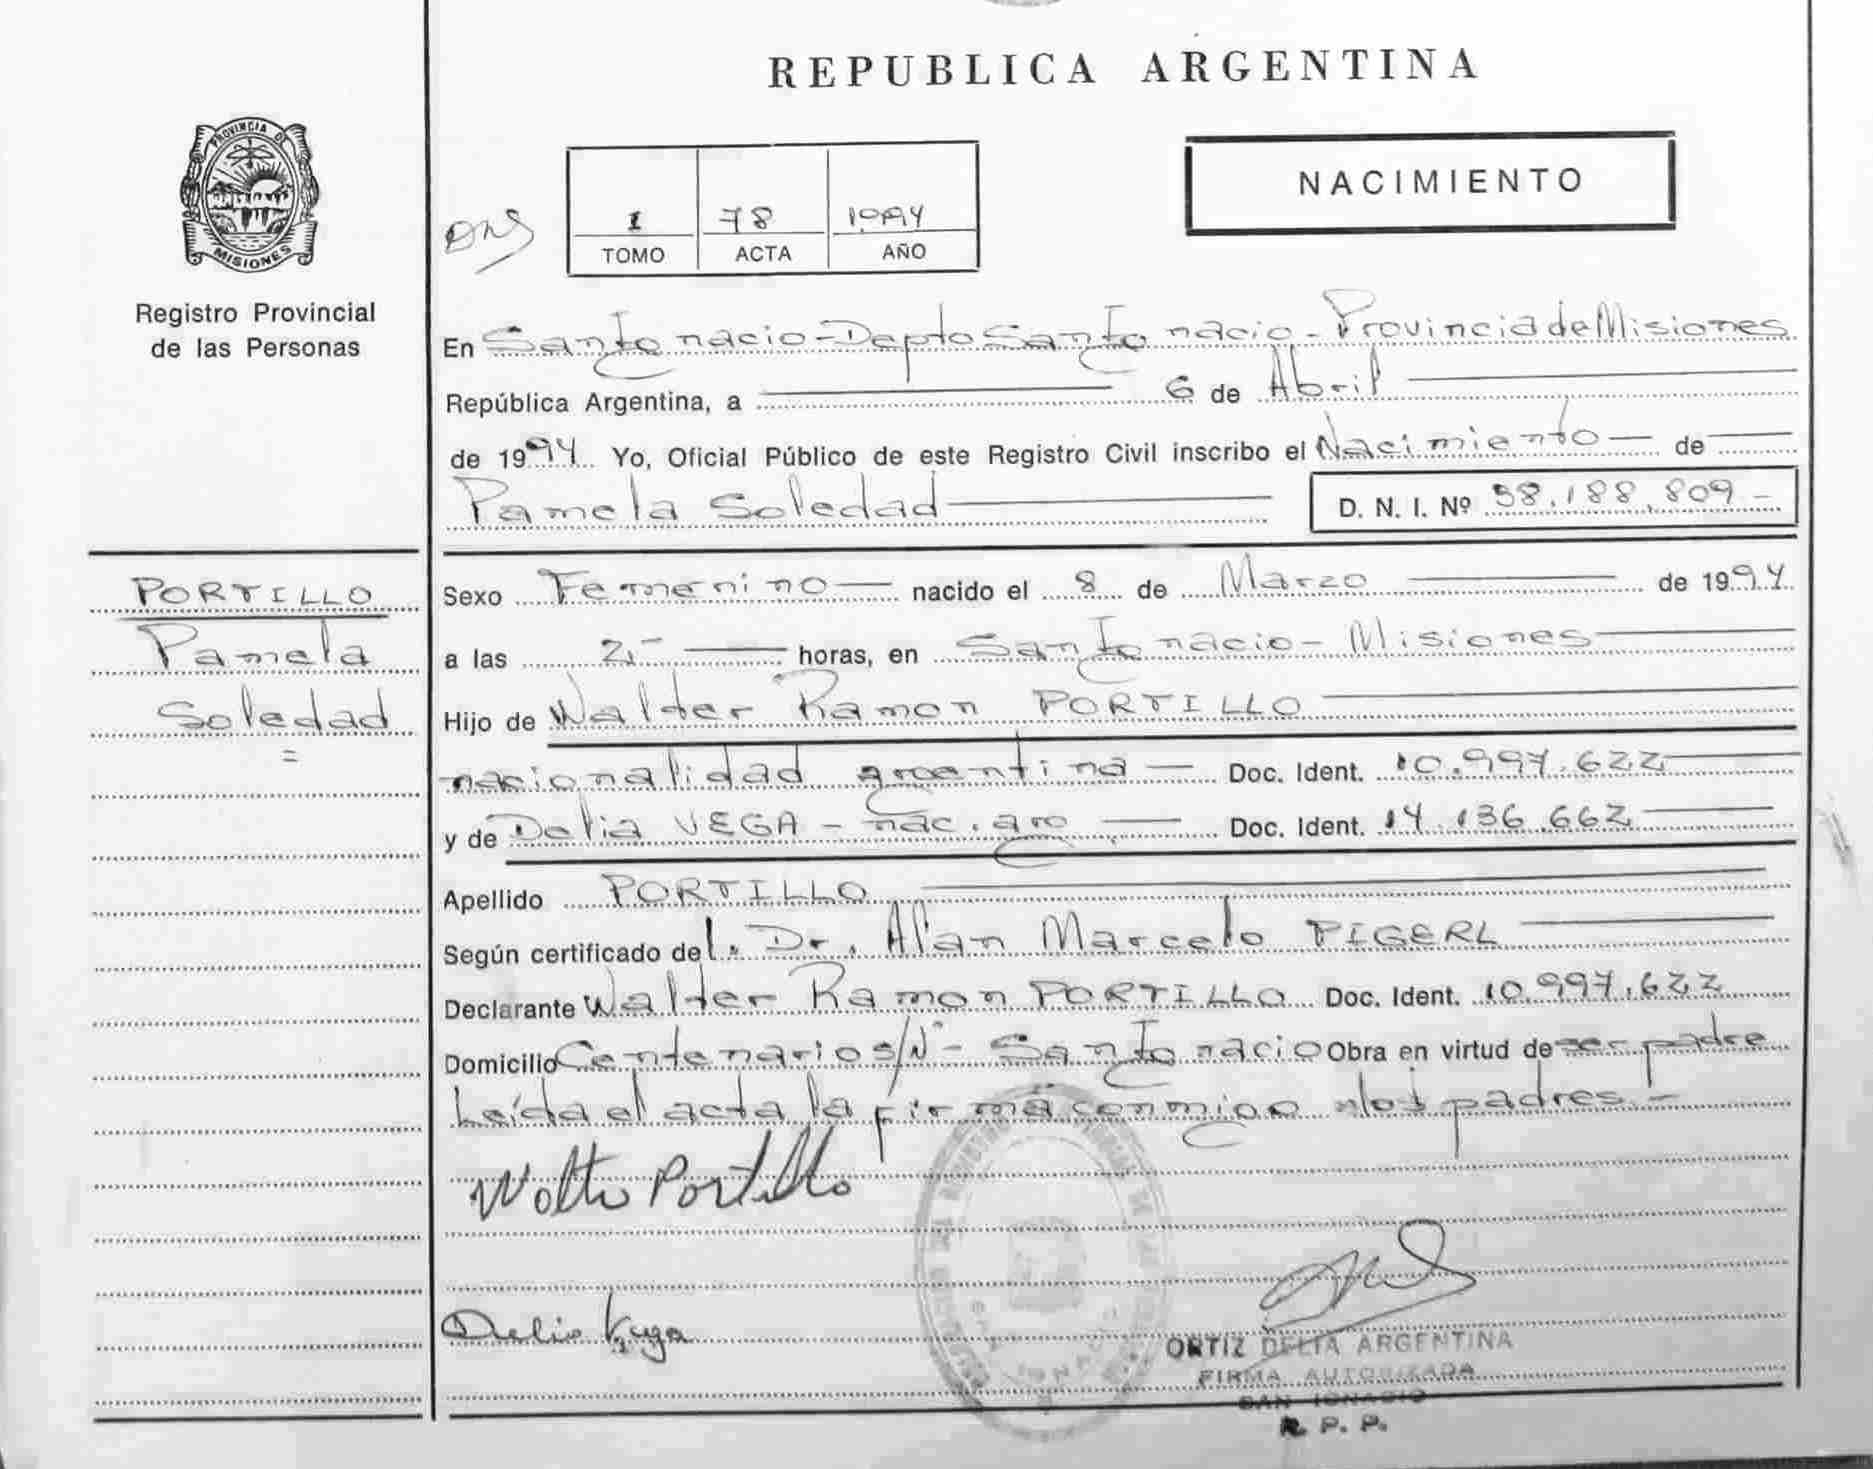 REPUBLICA ARGENTINA
PROVINCIA DE
MISIONES
Registro Provincial
de las Personas
NACIMIENTO
1 78 1994
TOMO ACTA AÑO
En San Ignacio - Depto San Ignacio - Provincia de Misiones
República Argentina, a 6 de Abril
de 1994 Yo, Oficial Público de este Registro Civil inscribo el Nacimiento de
Pamela Soledad D. N. I. Nº 38.188.809 -
PORTILLO
Pamela
Soledad
=
Sexo Femenino nacido el 8 de Marzo de 1994
a las 21 horas, en San Ignacio - Misiones
Hijo de Walter Ramon PORTILLO
nacionalidad argentina Doc. Ident. 10.997.622
y de Delia VEGA - nac. arg Doc. Ident. 14.136.662
Apellido PORTILLO
Según certificado del. Dr. Alan Marcelo PIGERL
Declarante Walter Ramon PORTILLO Doc. Ident. 10.997.622
Domicilio Centenario S/Nº - San Ignacio Obra en virtud de ser padre
Leída el acta la firma conmigo los padres. -
Walter Portillo
Delia Vega
ORTIZ DELIA ARGENTINA
FIRMA AUTORIZADA
SAN IGNACIO
R. P. P.